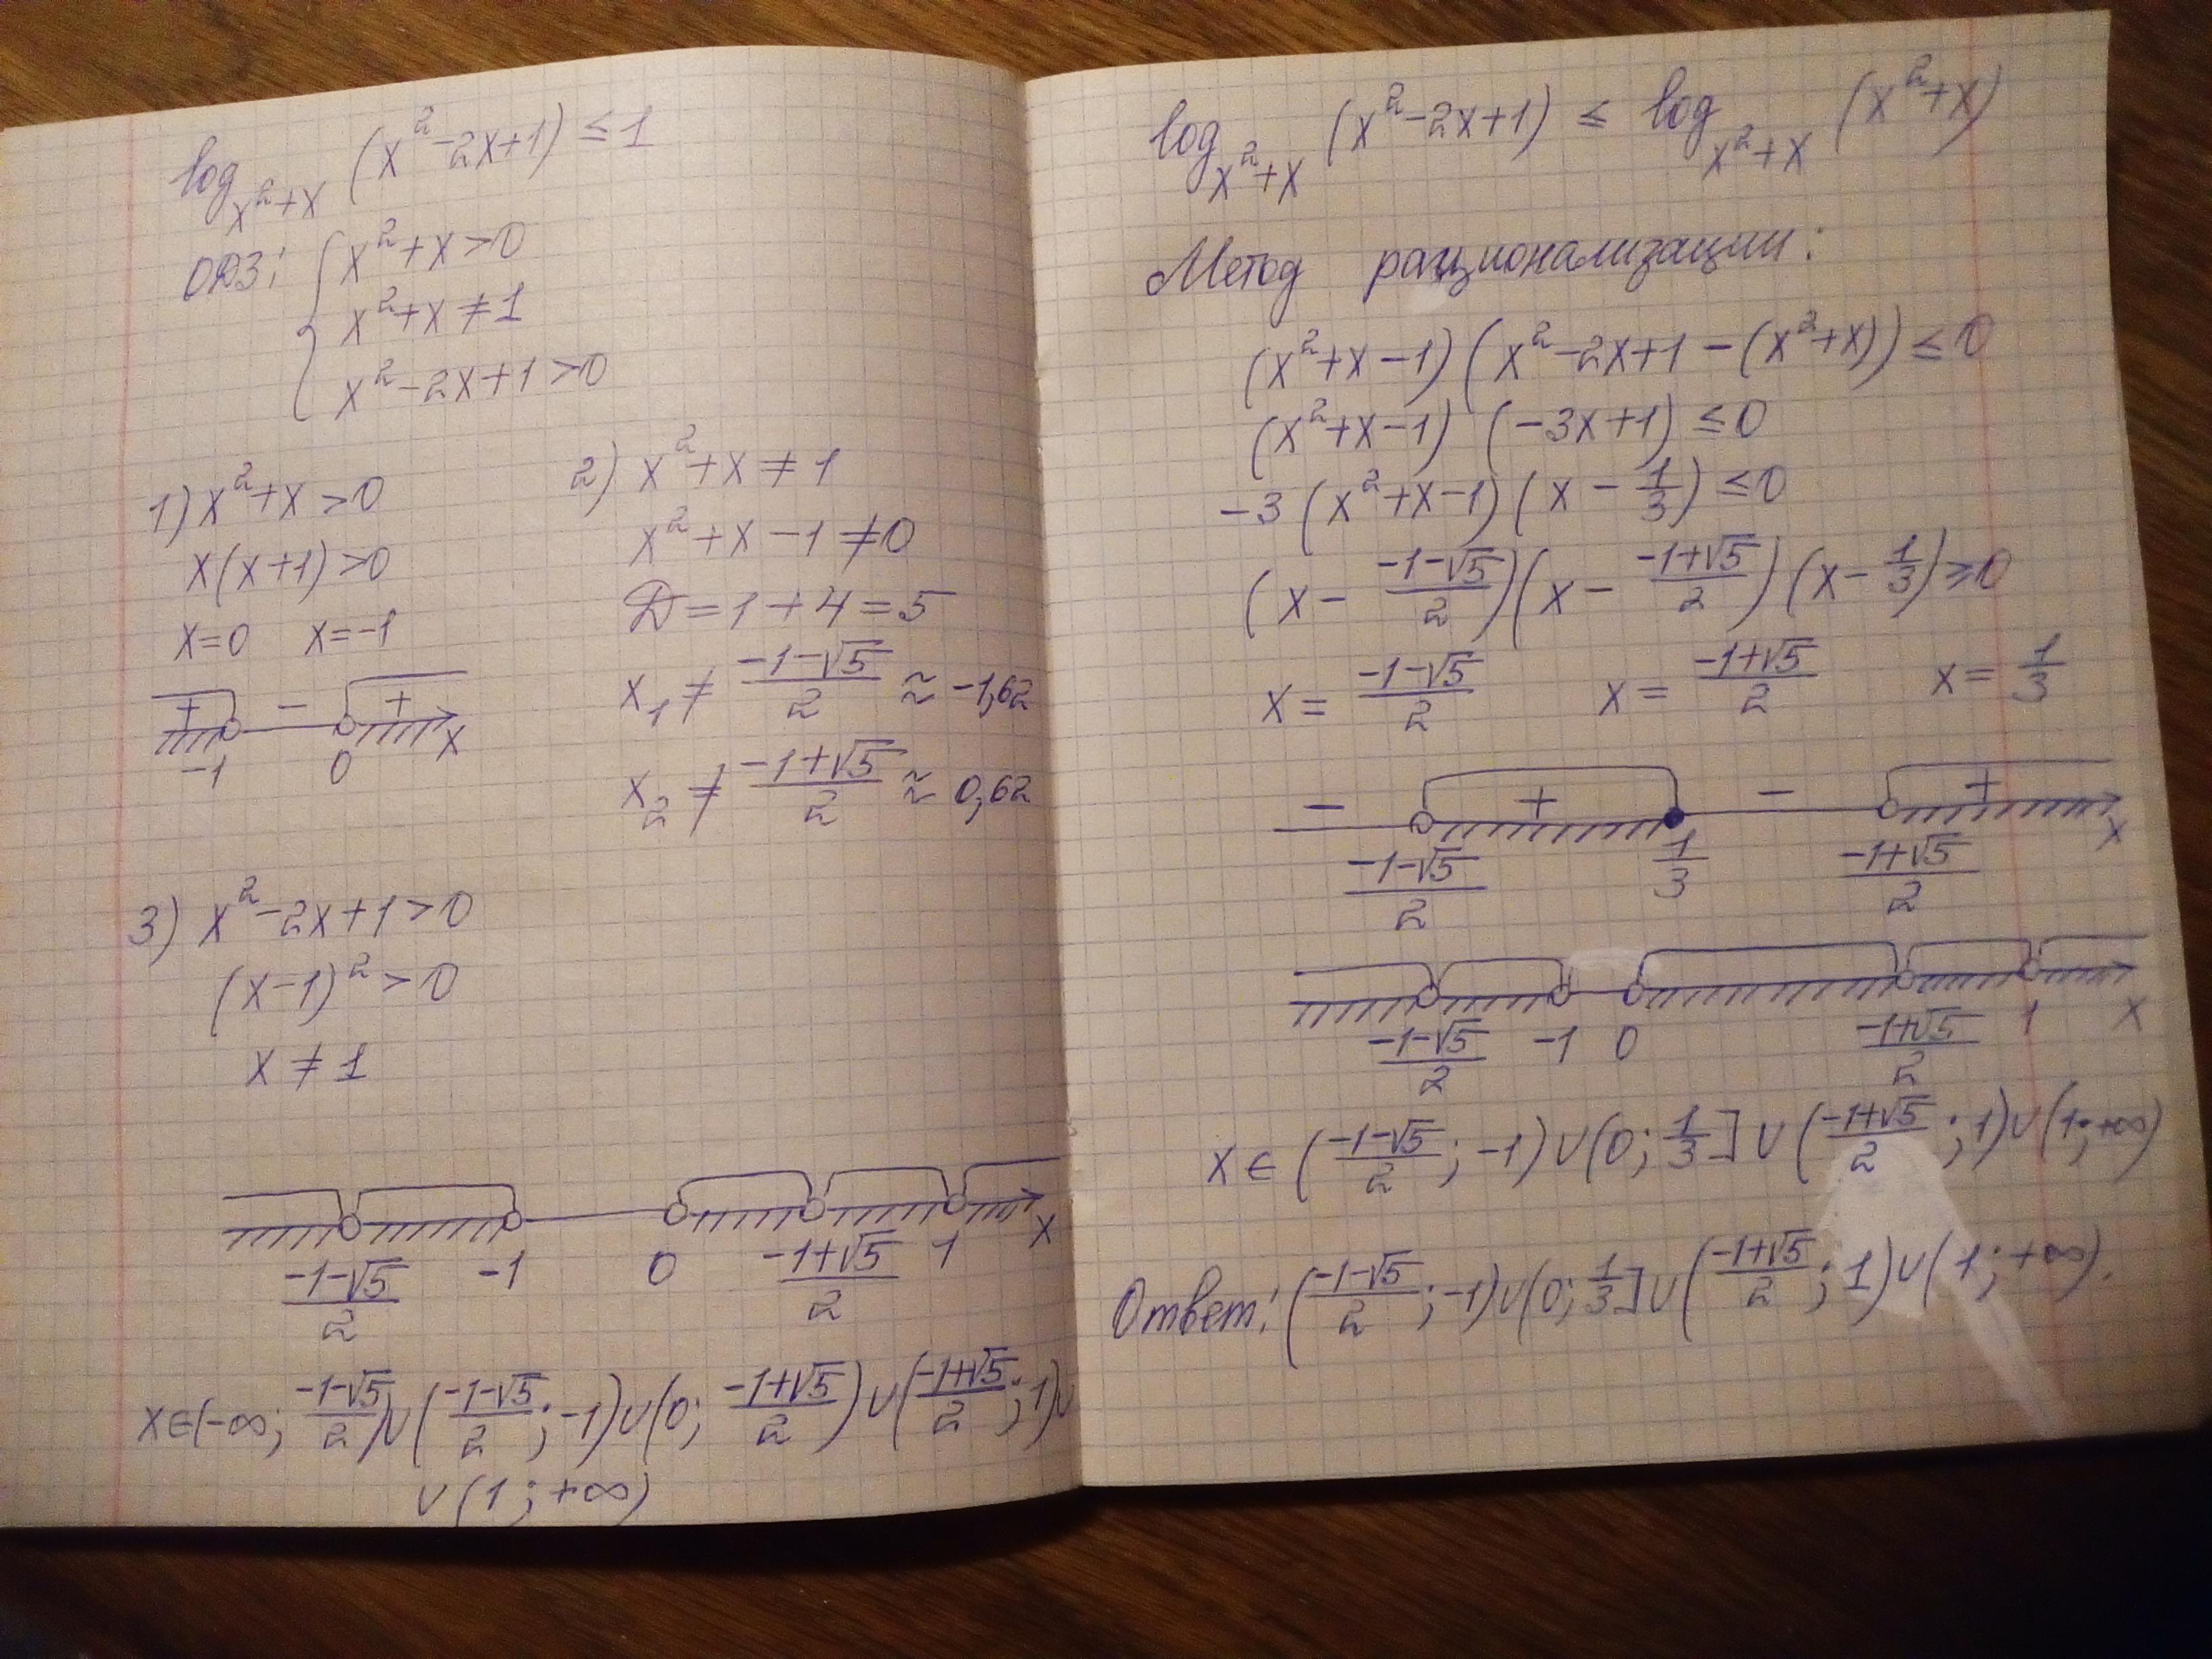 log_{x²+x} (x²-2x+1) ≤ 1
ОДЗ: { x²+x > 0
x²+x ≠ 1
x²-2x+1 > 0
1) x²+x > 0
x(x+1) > 0
x=0 x=-1
+ - +
-1 0 x
2) x²+x ≠ 1
x²+x-1 ≠ 0
D = 1+4 = 5
x₁ ≠ (-1-√5)/2 ≈ -1,62
x₂ ≠ (-1+√5)/2 ≈ 0,62
3) x²-2x+1 > 0
(x-1)² > 0
x ≠ 1
(-1-√5)/2 -1 0 (-1+√5)/2 1 x
x∈(-∞; (-1-√5)/2)∪((-1-√5)/2; -1)∪(0; (-1+√5)/2)∪((-1+√5)/2; 1)∪
∪(1; +∞)
log_{x²+x} (x²-2x+1) ≤ log_{x²+x} (x²+x)
Метод рационализации:
(x²+x-1)(x²-2x+1-(x²+x)) ≤ 0
(x²+x-1) (-3x+1) ≤ 0
-3(x²+x-1)(x-1/3) ≤ 0
(x-(-1-√5)/2)(x-(-1+√5)/2)(x-1/3) ≥ 0
x = (-1-√5)/2 x = (-1+√5)/2 x = 1/3
- + - +
(-1-√5)/2 1/3 (-1+√5)/2 x
(-1-√5)/2 -1 0 (-1+√5)/2 1 x
x∈((-1-√5)/2; -1)∪(0; 1/3]∪((-1+√5)/2; 1)∪(1; +∞)
Ответ: ((-1-√5)/2; -1)∪(0; 1/3]∪((-1+√5)/2; 1)∪(1; +∞).